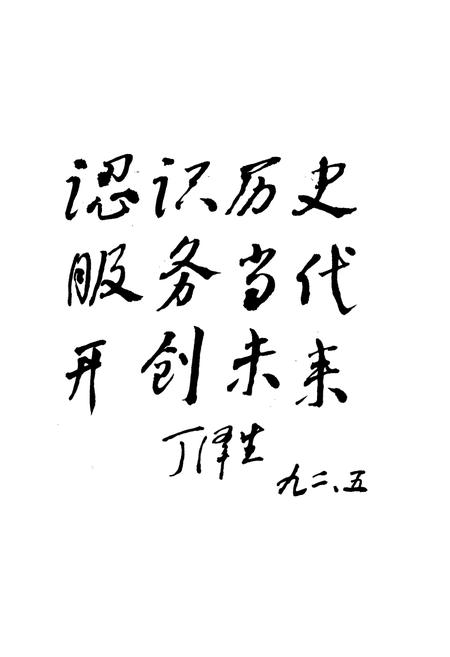 認识历史
服务当代
开创未来
丁泽生
九二、五